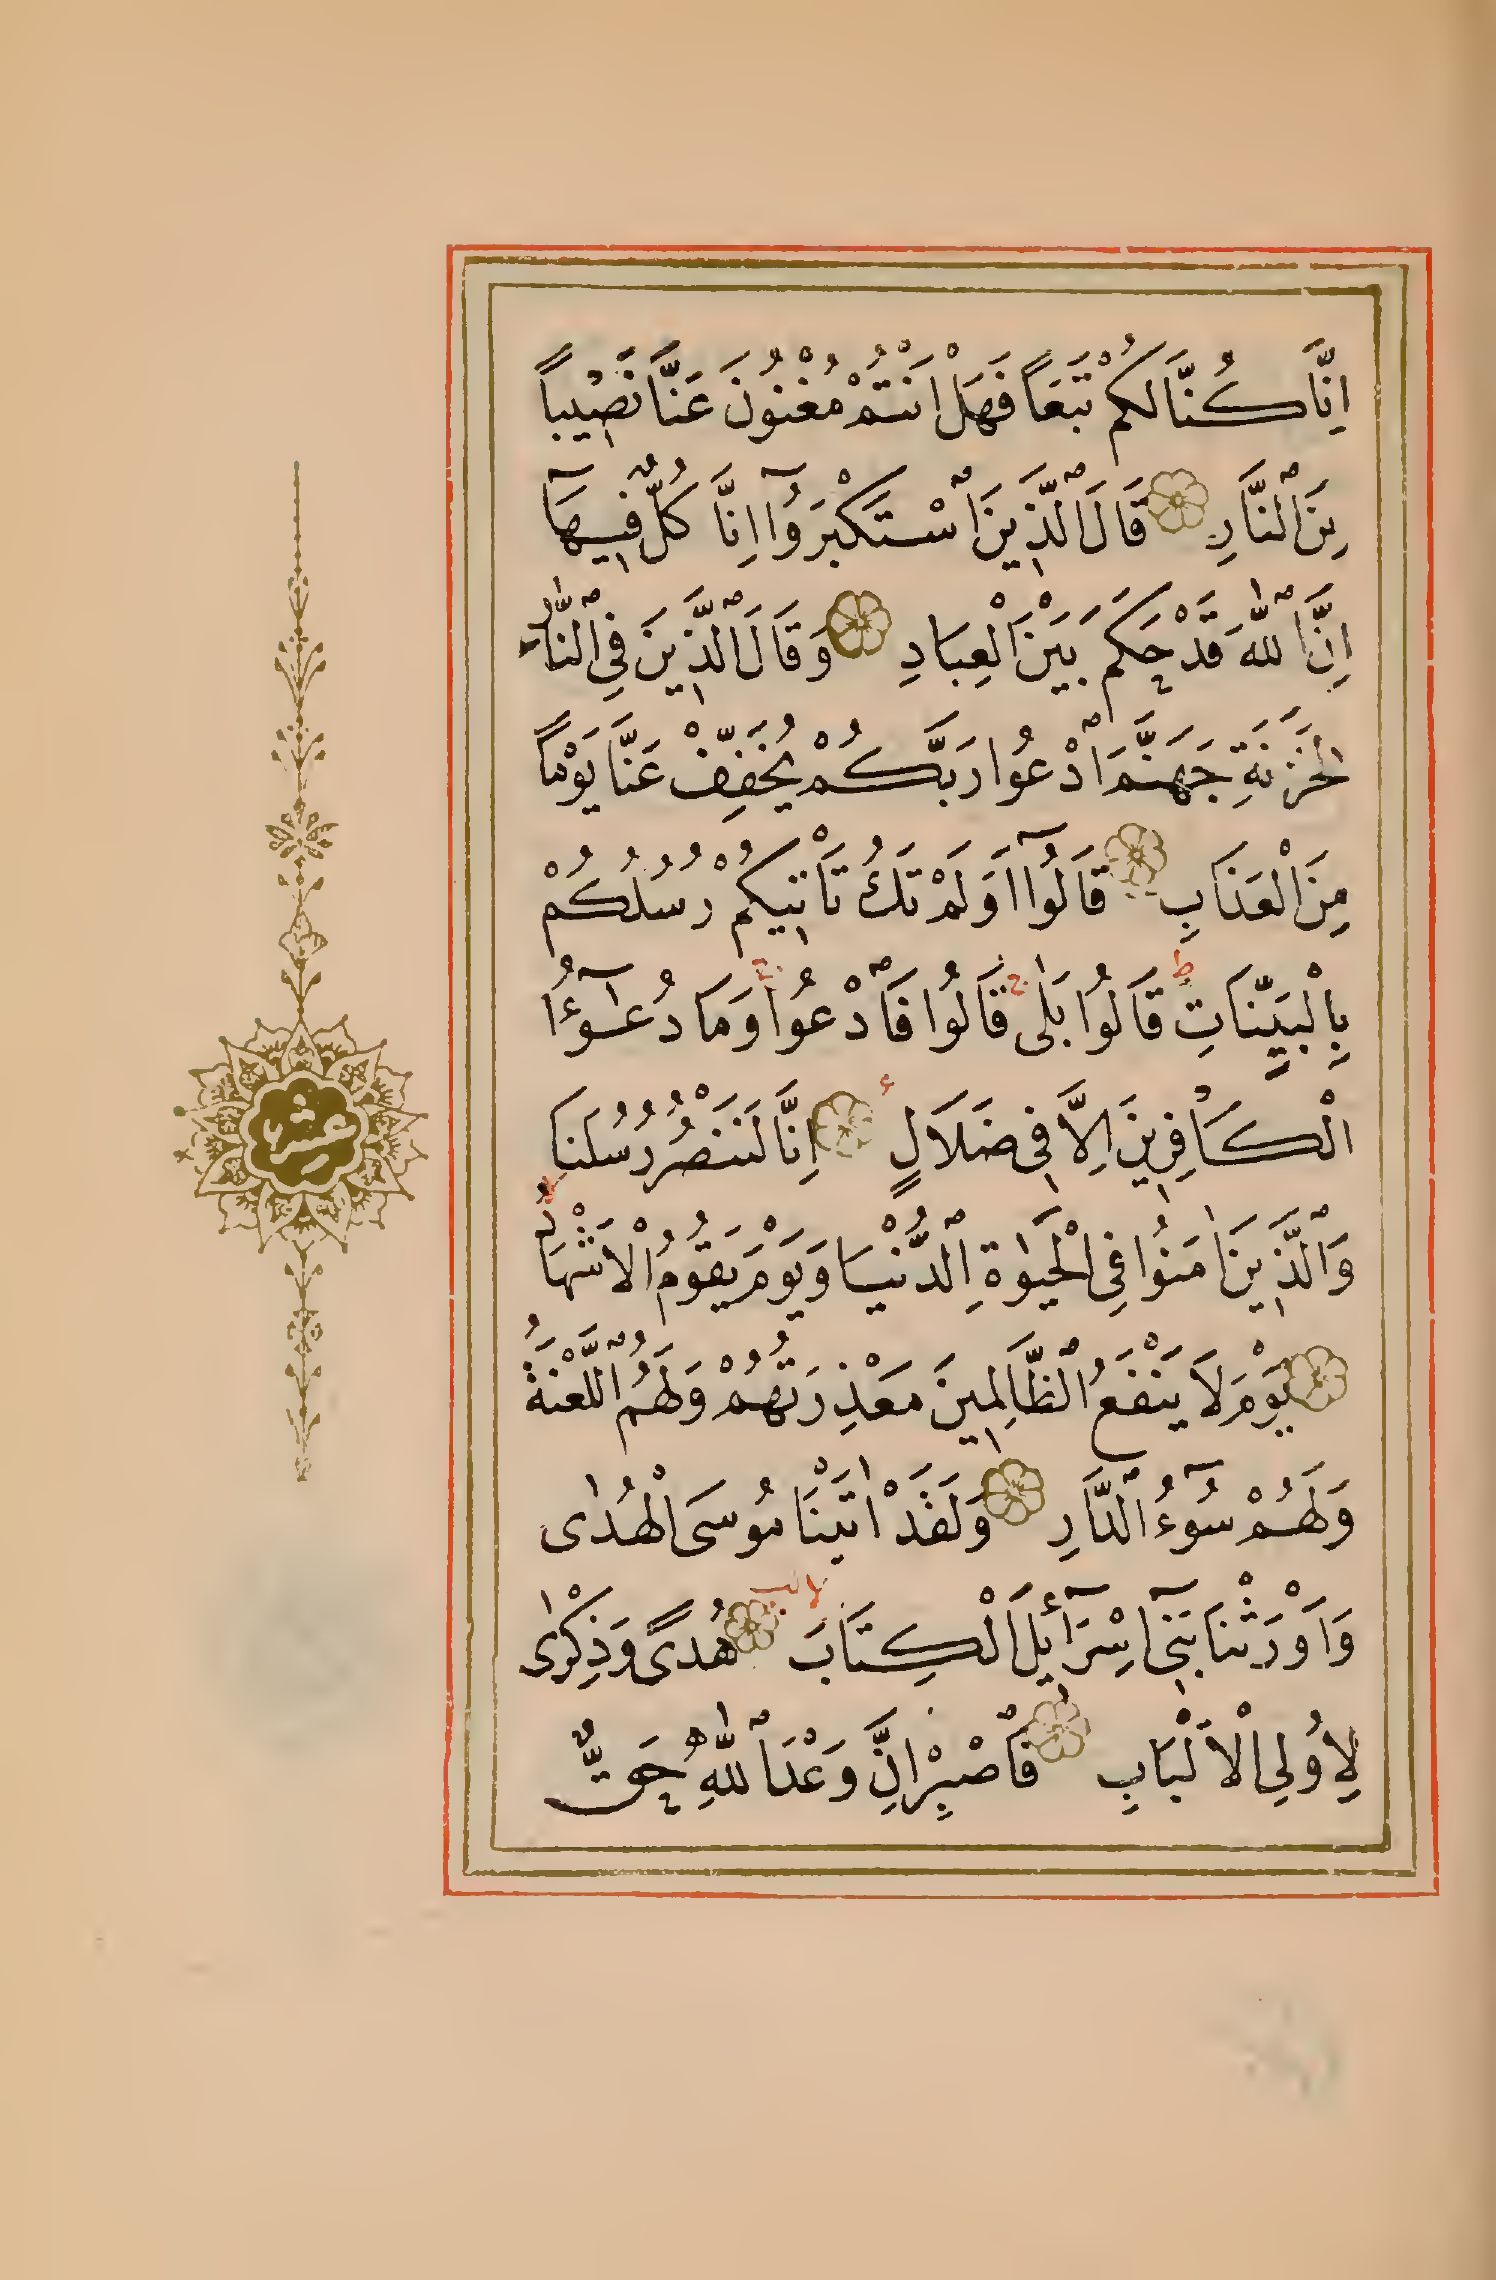 اِنَّا كُنَّا لَكُمْ تَبَعًا فَهَلْ اَنْتُمْ مُغْنُونَ عَنَّا نَصِيبًا
مِنَ ٱلنَّارِ قَالَ ٱلَّذِينَ ٱسْتَكْبَرُوٓا اِنَّا كُلٌّ فِيهَآ
اِنَّ ٱللّٰهَ قَدْ حَكَمَ بَيْنَ الْعِبَادِ وَقَالَ ٱلَّذِينَ فِي ٱلنَّارِ
لِخَزَنَةِ جَهَنَّمَ ٱدْعُوا رَبَّكُمْ يُخَفِّفْ عَنَّا يَوْمًا
مِنَ الْعَذَابِ قَالُوٓا اَوَلَمْ تَكُ تَاْتِيكُمْ رُسُلُكُمْ
بِالْبَيِّنَاتِ ط قَالُوا بَلٰى ج قَالُوا فَٱدْعُوا ج وَمَا دُعٰٓؤُا
الْكَافِرِينَ اِلَّا فِي ضَلَالٍ ع اِنَّا لَنَنْصُرُ رُسُلَنَا
وَٱلَّذِينَ اٰمَنُوا فِي الْحَيٰوةِ ٱلدُّنْيَا وَيَوْمَ يَقُومُ الْاَشْهَادُ لا
يَوْمَ لَا يَنْفَعُ ٱلظَّالِمِينَ مَعْذِرَتُهُمْ وَلَهُمُ ٱللَّعْنَةُ
وَلَهُمْ سُوٓءُ ٱلدَّارِ وَلَقَدْ اٰتَيْنَا مُوسَى الْهُدٰى
وَاَوْرَثْنَا بَنِيٓ اِسْرَٓائِلَ الْكِتَابَ هُدًى وَذِكْرٰى
لِاُولِي الْاَلْبَابِ فَٱصْبِرْ اِنَّ وَعْدَ ٱللّٰهِ حَقٌّ
عشر